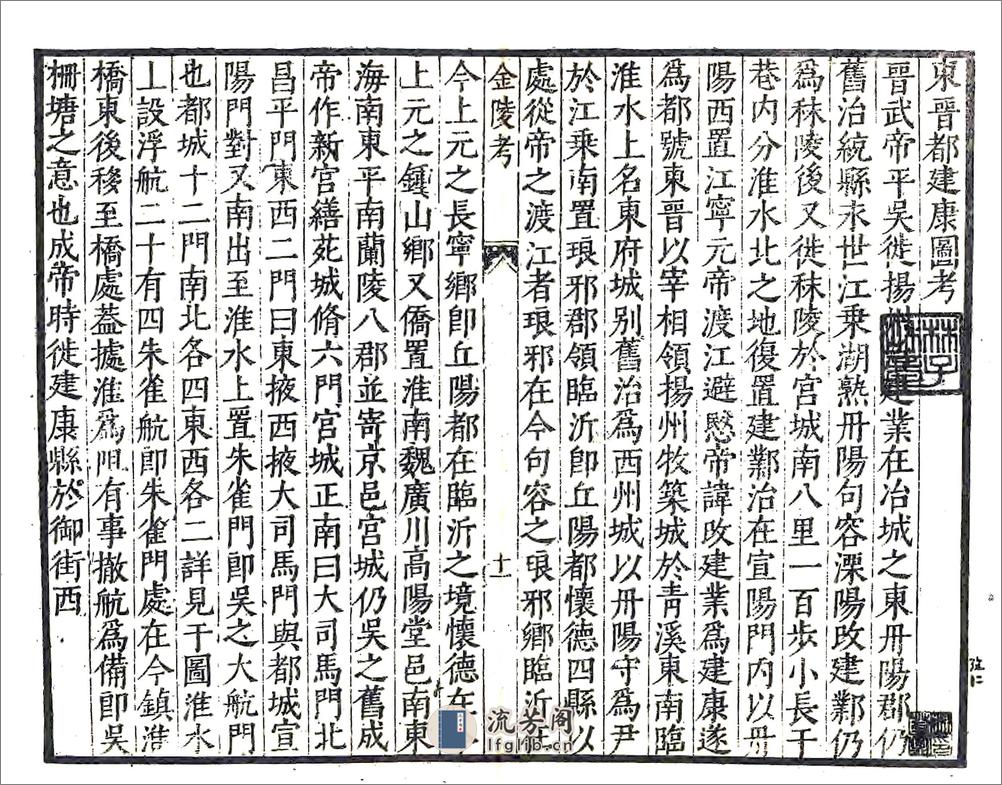 東晉都建康圖考
晉武帝平吳徙揚州建業在冶城之東丹陽郡仍
舊治統縣永世江乗湖熟丹陽句容溧陽改建鄴仍
爲秣陵後又徙秣陵於宮城南八里一百歩小長干
巷内分淮水北之地復置建鄴治在宣陽門内以丹
陽西置江寧元帝渡江避愍帝諱改建業爲建康遂
爲都號東晉以宰相領揚州牧築城於青溪東南臨
淮水上名東府城别舊治爲西州城以丹陽守爲尹
於江乗南置琅邪郡領臨沂卽丘陽都懷德四縣以
處從帝之渡江者琅邪在今句容之琅邪鄉臨沂在
金陵考
十一
今上元之長寧鄉卽丘陽都在臨沂之境懷德在
上元之鍾山鄉又僑置淮南魏廣川高陽堂邑南東
海南東平南蘭陵八郡並寄京邑宮城仍吳之舊成
帝作新宮繕苑城脩六門宮城正南曰大司馬門北
昌平門東西二門曰東掖西掖大司馬門與都城宣
陽門對又南出至淮水上置朱雀門卽吳之大航門
也都城十二門南北各四東西各二詳見于圖淮水
上設浮航二十有四朱雀航卽朱雀門處在今鎮淮
橋東後移至橋處葢據淮爲阻有事撤航爲備卽吳
柵塘之意也成帝時徙建康縣於御街西
流芳阁
lfglib.cn